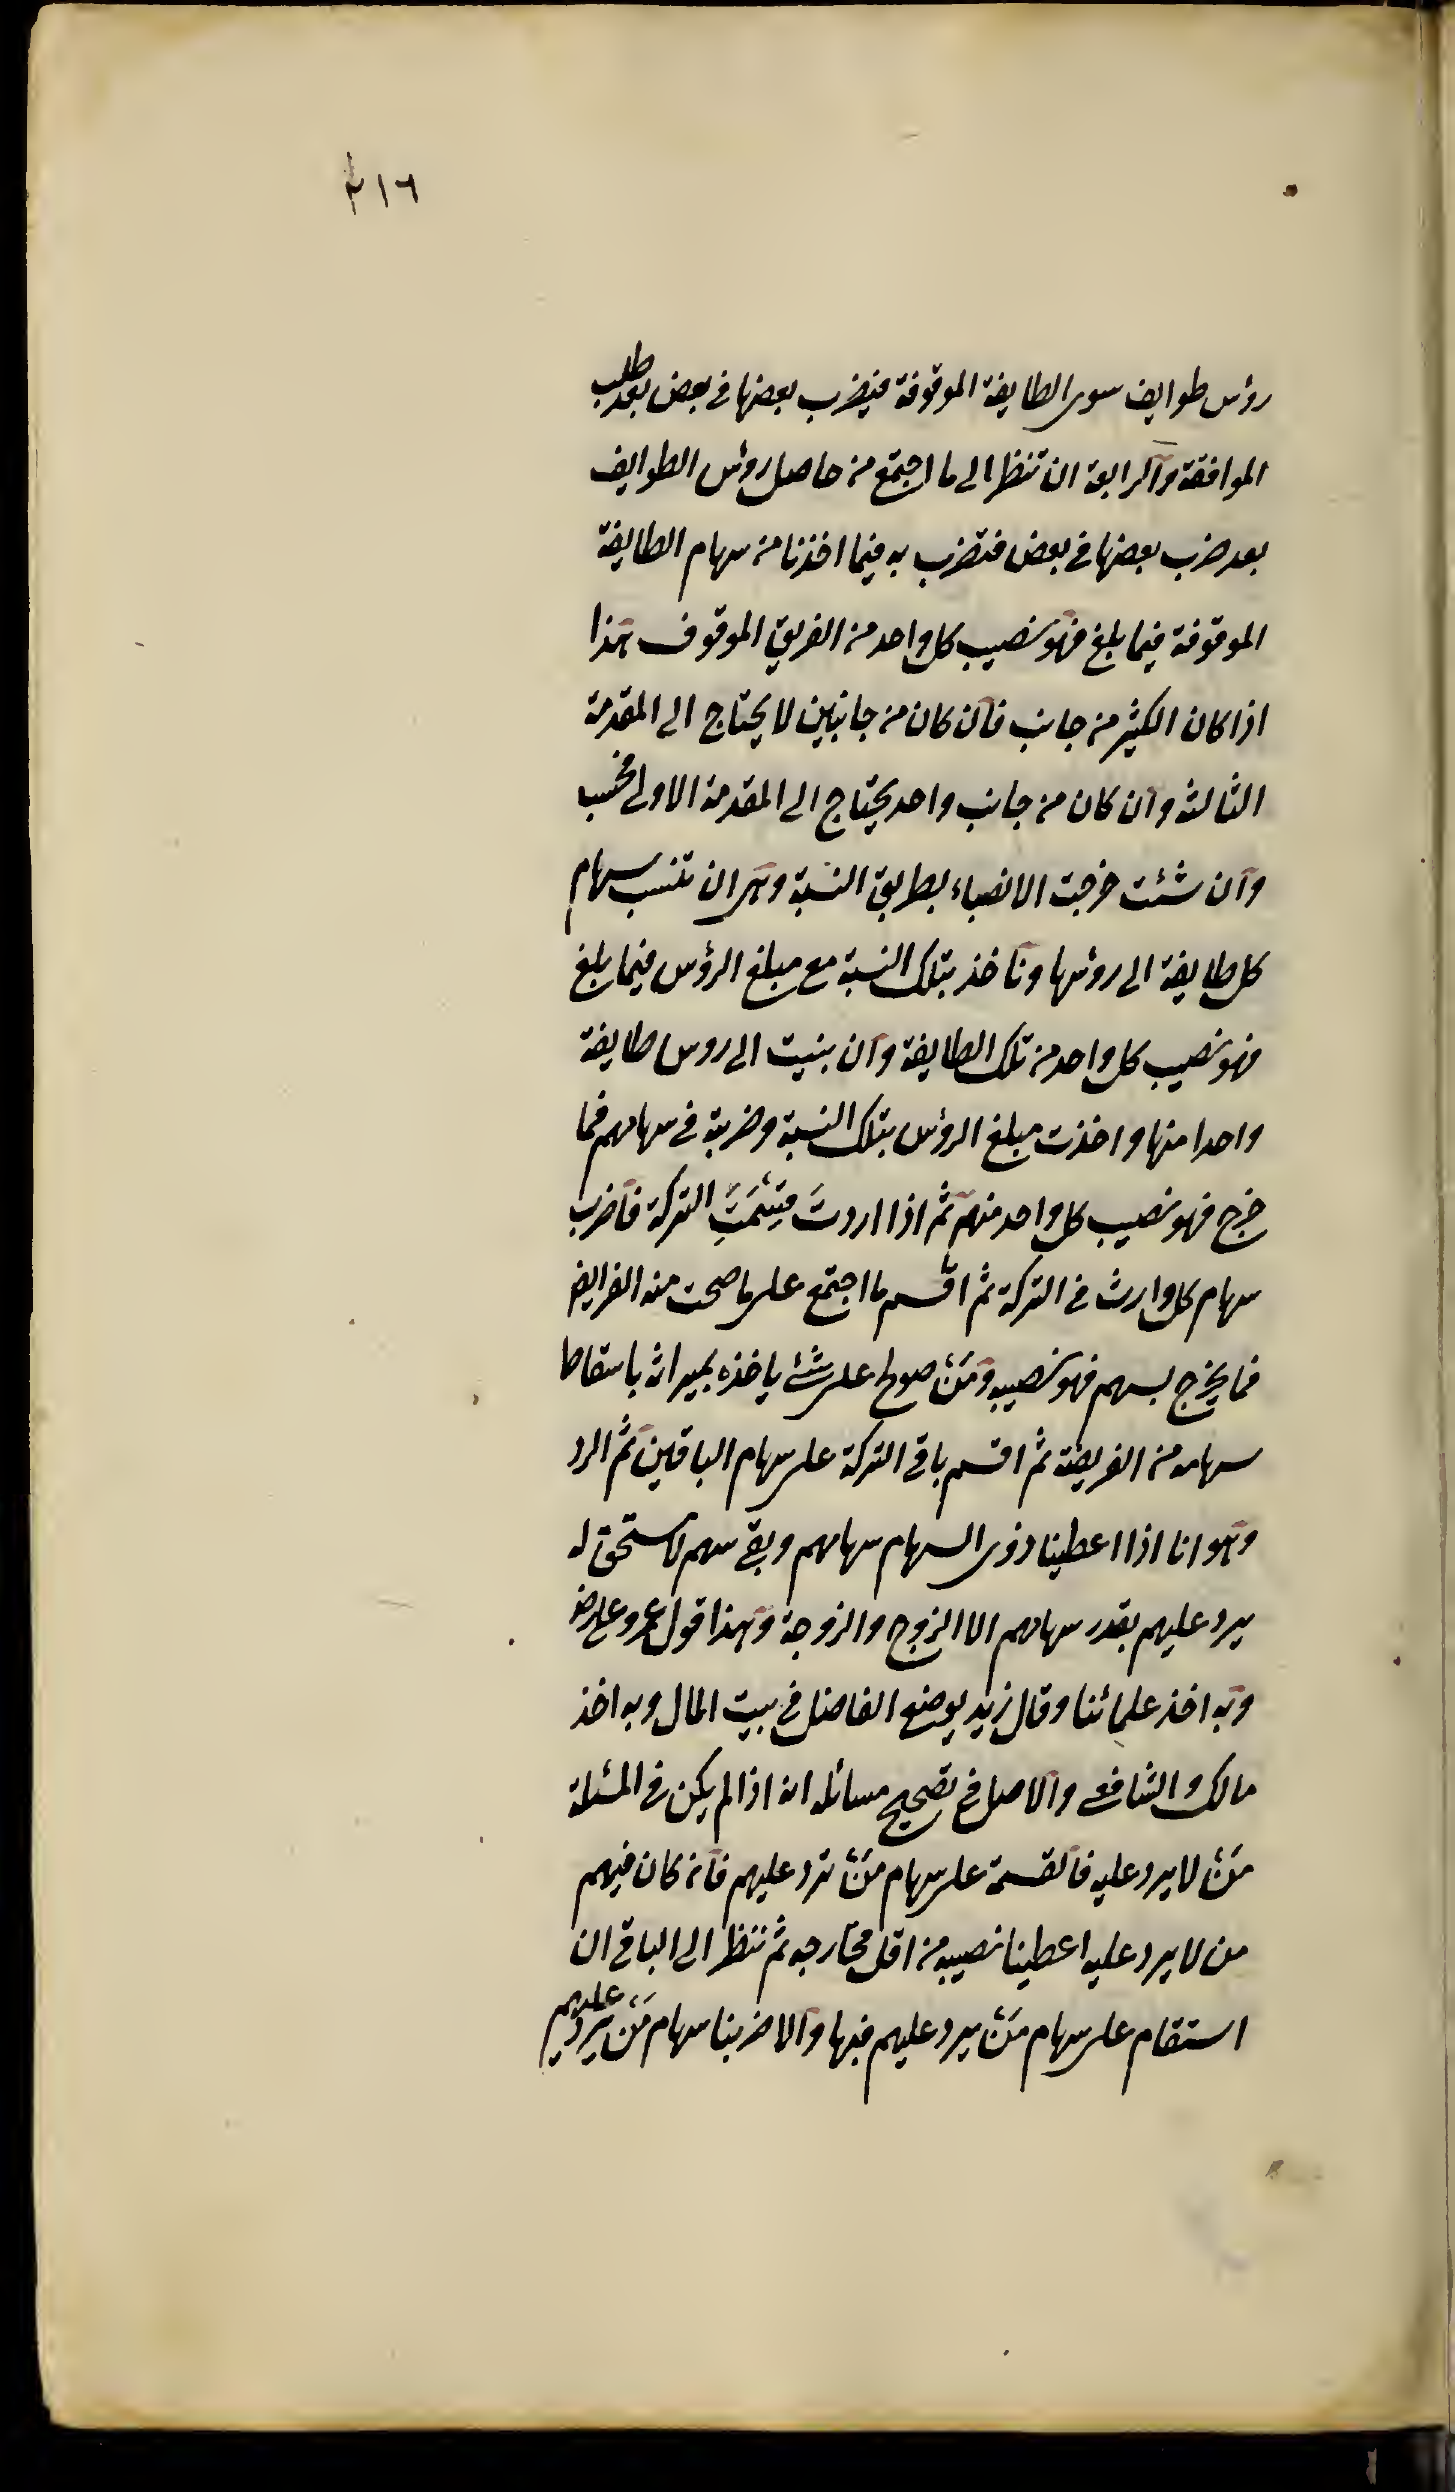 ٢١٦
رؤس طوايف سوى الطايفة الموقوفة فيضرب بعضها في بعض بعد طلب
الموافقة والرابعة ان تنظر الى ما اجتمع من حاصل رؤس الطوايف
بعد ضرب بعضها في بعض فتضرب به فيما اخذنا من سهام الطايفة
الموقوفة فيما بلغ فهو نصيب كل واحد من الفريق الموقوف هذا
اذا كان الكثير من جانب فان كان من جانبين لا يحتاج الى المقدمة
الثالثة وان كان من جانب واحد يحتاج الى المقدمة الاولى فحسب
وان شئت خرجت الانصباء بطريق النسبة وهى ان تنسب سهام
كل طايفة الى رؤسها وتاخذ بتلك النسبة مع مبلغ الرؤس فيما بلغ
فهو نصيب كل واحد من تلك الطايفة وان بنيت الى روس طايفة
واحدا منها واخذت مبلغ الرؤس بتلك النسبة وضربته في سهامهم فما
خرج فهو نصيب كل واحد منهم ثم اذا اردتَ قِسْمَتَ التركة فاضرب
سهام كل وارث في التركة ثم اقسم ما اجتمع على ما صحت منه الفرايض
فما يخرج بسهم فهو نصيبه ومَنْ صولح على شئ ياخذه بميراثه باسقاط
سهامه من الفريضة ثم اقسم باقى التركة على سهام الباقين ثم الرد
وهو انا اذا اعطينا ذوى السهام سهامهم وبقى سهم لا مستحق له
يرد عليهم بقدر سهامهم الا الزوج والزوجة وهذا قول عمر وعلى رض
وبه اخذ علمائنا وقال زيد يوضع الفاضل في بيت المال وبه اخذ
مالك والشافعى والاصل في تصحيح مسائله انه اذا لم يكن في المسئلة
مَنْ لا يرد عليه فالقسمة على سهام مَنْ ترد عليهم فان كان فيهم
من لا يرد عليه اعطينا نصيبه من اقل مخارجه ثم ننظر الى الباقى ان
استقام على سهام مَنْ يرد عليهم فبها والا ضربنا سهام مَنْ يرد عليهم